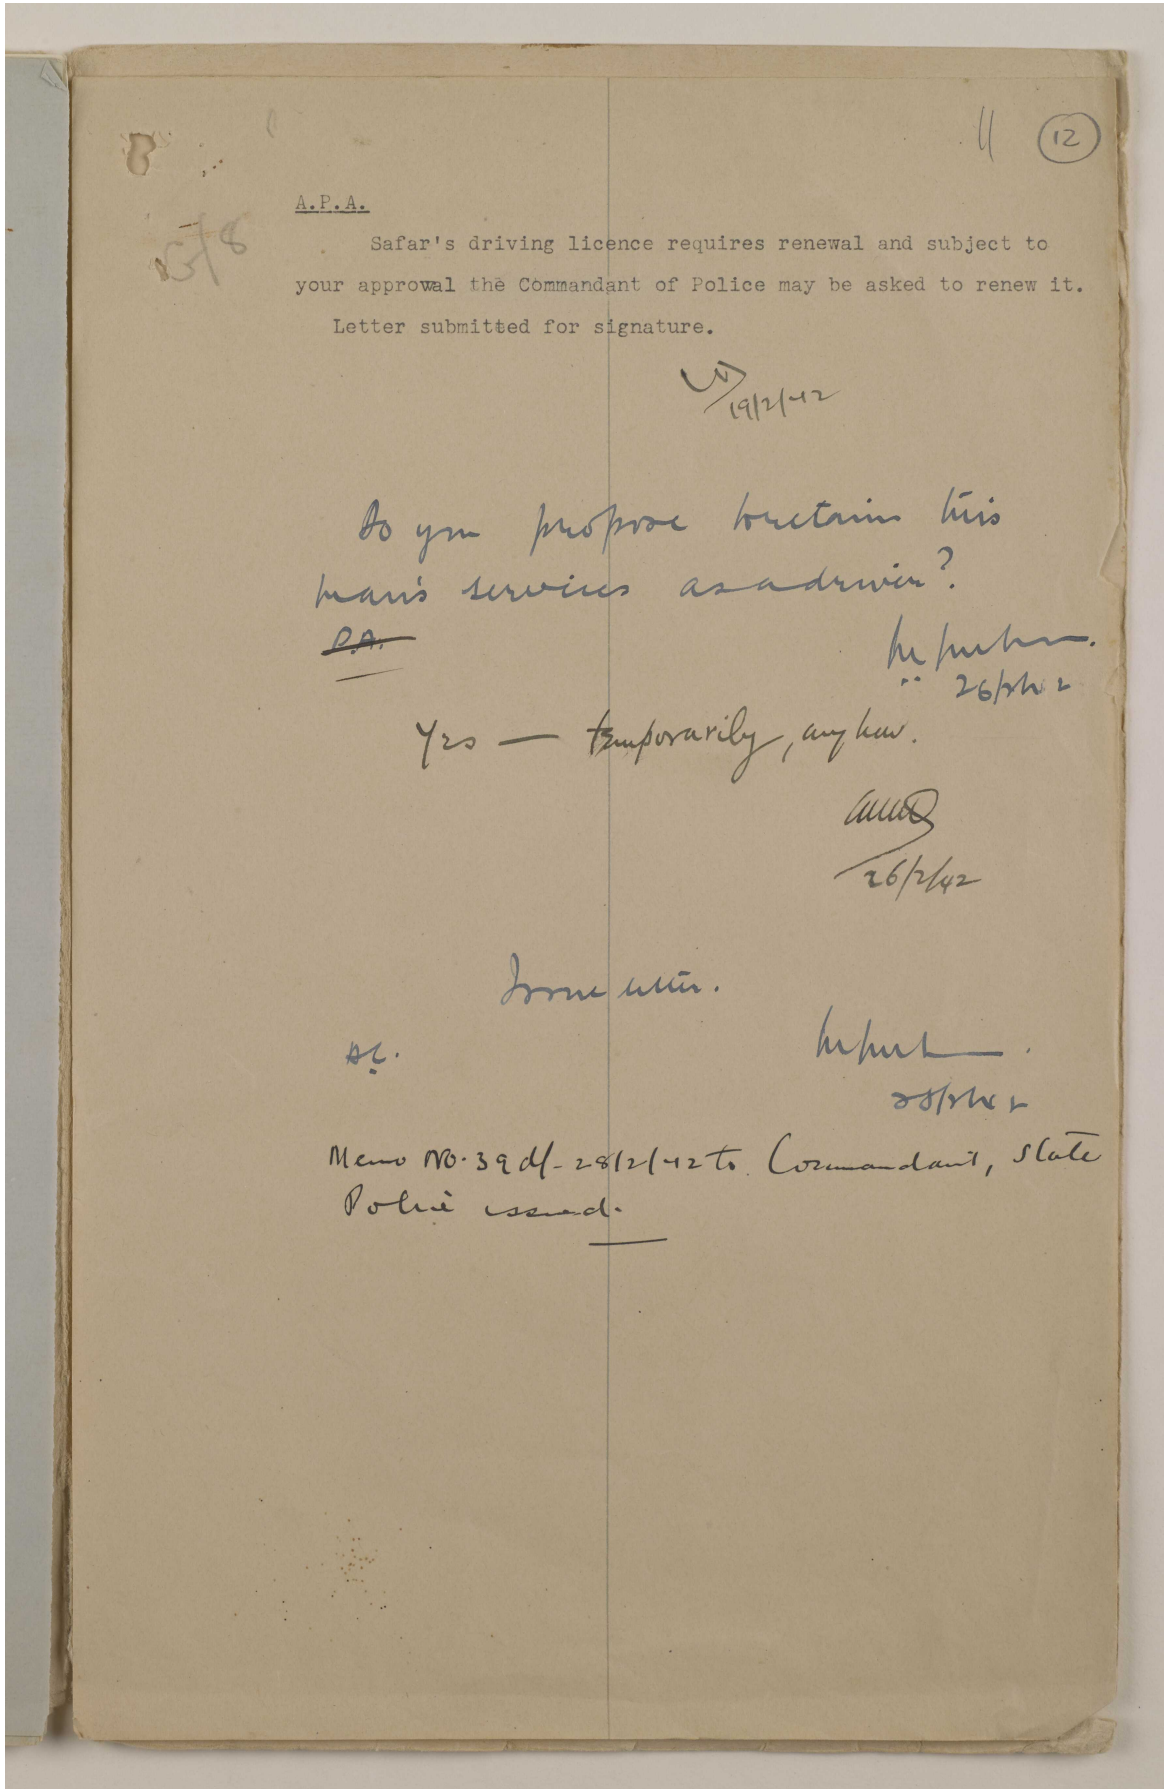 12
A.P.A.
Safar's driving licence requires renewal and subject to
your approval the Commandant of Police may be asked to renew it.
Letter submitted for signature.
19/2/42
Do you propose to retain this
man's services as a driver?
P.A.
26/2/42
Yes — temporarily, anyhow.
26/2/42
Issue letter.
28/2/42
Memo No. 39 d/- 28/2/42 to Commandant, State
Police issued.